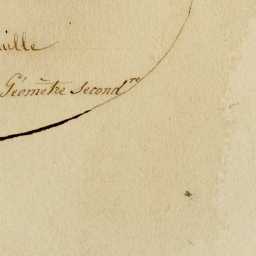 uille
Géomẽtre second.re